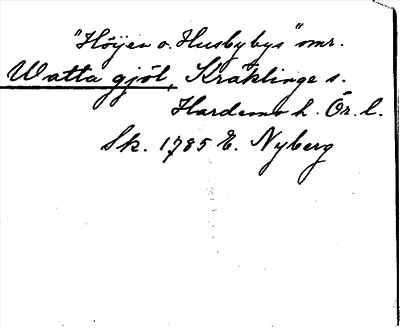 "Höjen o. Husbybys" omr.
Watta gjöl, Kräklinge s.
Hardemo h. Ör. l.
Sk. 1785 E. Nyberg